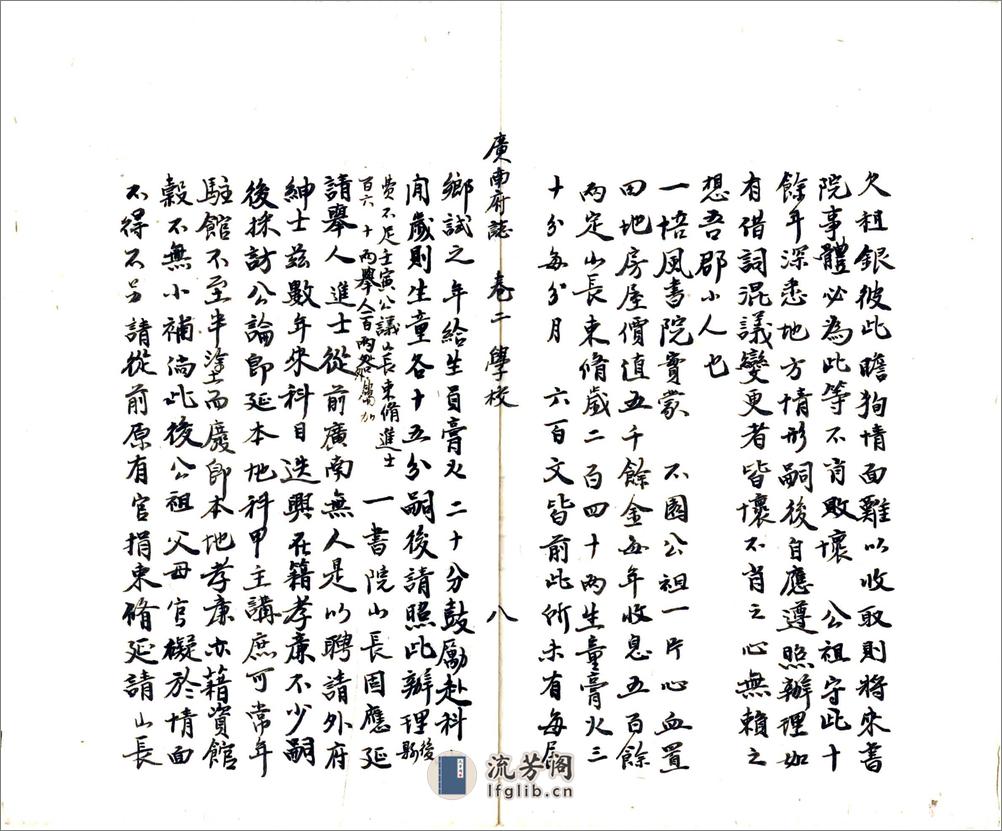 欠租銀彼此瞻狥情面難以收取則將來書
院事體必為此等不肖敗壞　公祖守此十
餘年深悉地方情形嗣後自應遵照辦理如
有借詞混議變更者皆壞不肖之心無賴之
想吾郡小人也
一悟風書院實蒙　不圖公祖一片心血置
田地房屋價值五千餘金每年收息五百餘
兩定山長束脩歲二百四十兩生童膏火三
十分每分月　六百文皆前此所未有每屆
廣南府誌　卷二　學校　八
鄉試之年給生員膏火二十分鼓勵赴科
閒歲則生童各十五分嗣後請照此辦理後
費不足壬寅公議山長束脩進士
百六十兩舉人一百兩　一書院山長固應延
請舉人進士從前廣南無人是以聘請外府
紳士茲數年來科目迭興在籍孝廉不少嗣
後採訪公論即延本地科甲主講庶可常年
駐館不至半塗而廢即本地孝廉亦藉資館
穀不無小補倘此後公祖父母官礙於情面
不得不另請從前原有官捐束脩延請山長
流芳阁
lfglib.cn